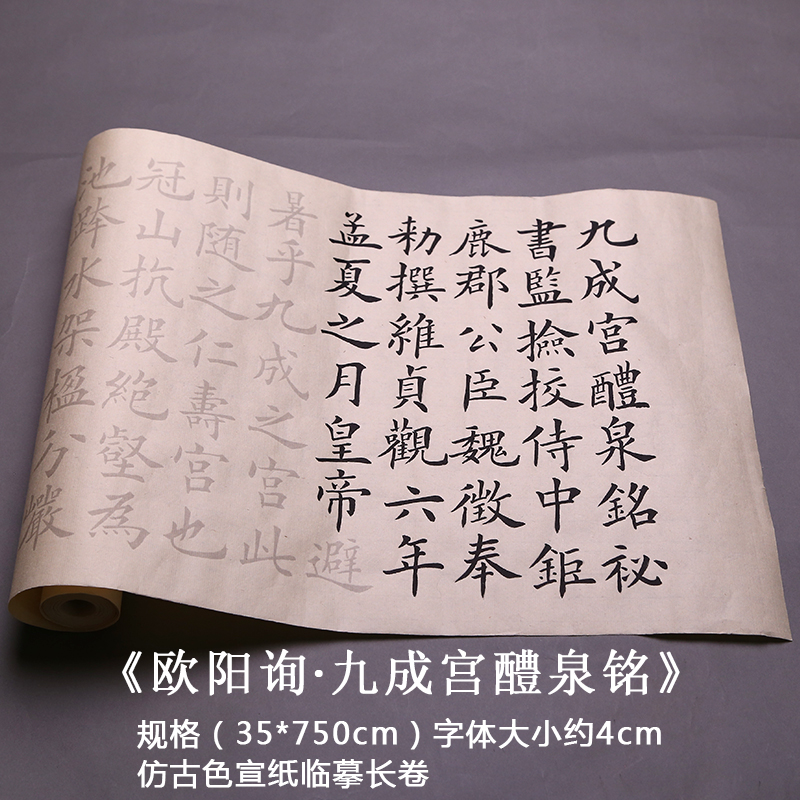 九成宫醴泉銘祕
書監撿挍侍中鉅
鹿郡公臣魏徵奉
勑撰維貞觀六年
孟夏之月皇帝避
暑乎九成之宫此
則随之仁壽宫也
冠山抗殿絶壑為
池跨水架楹分巖
《欧阳询·九成宫醴泉铭》
规格（35*750cm）字体大小约4cm
仿古色宣纸临摹长卷